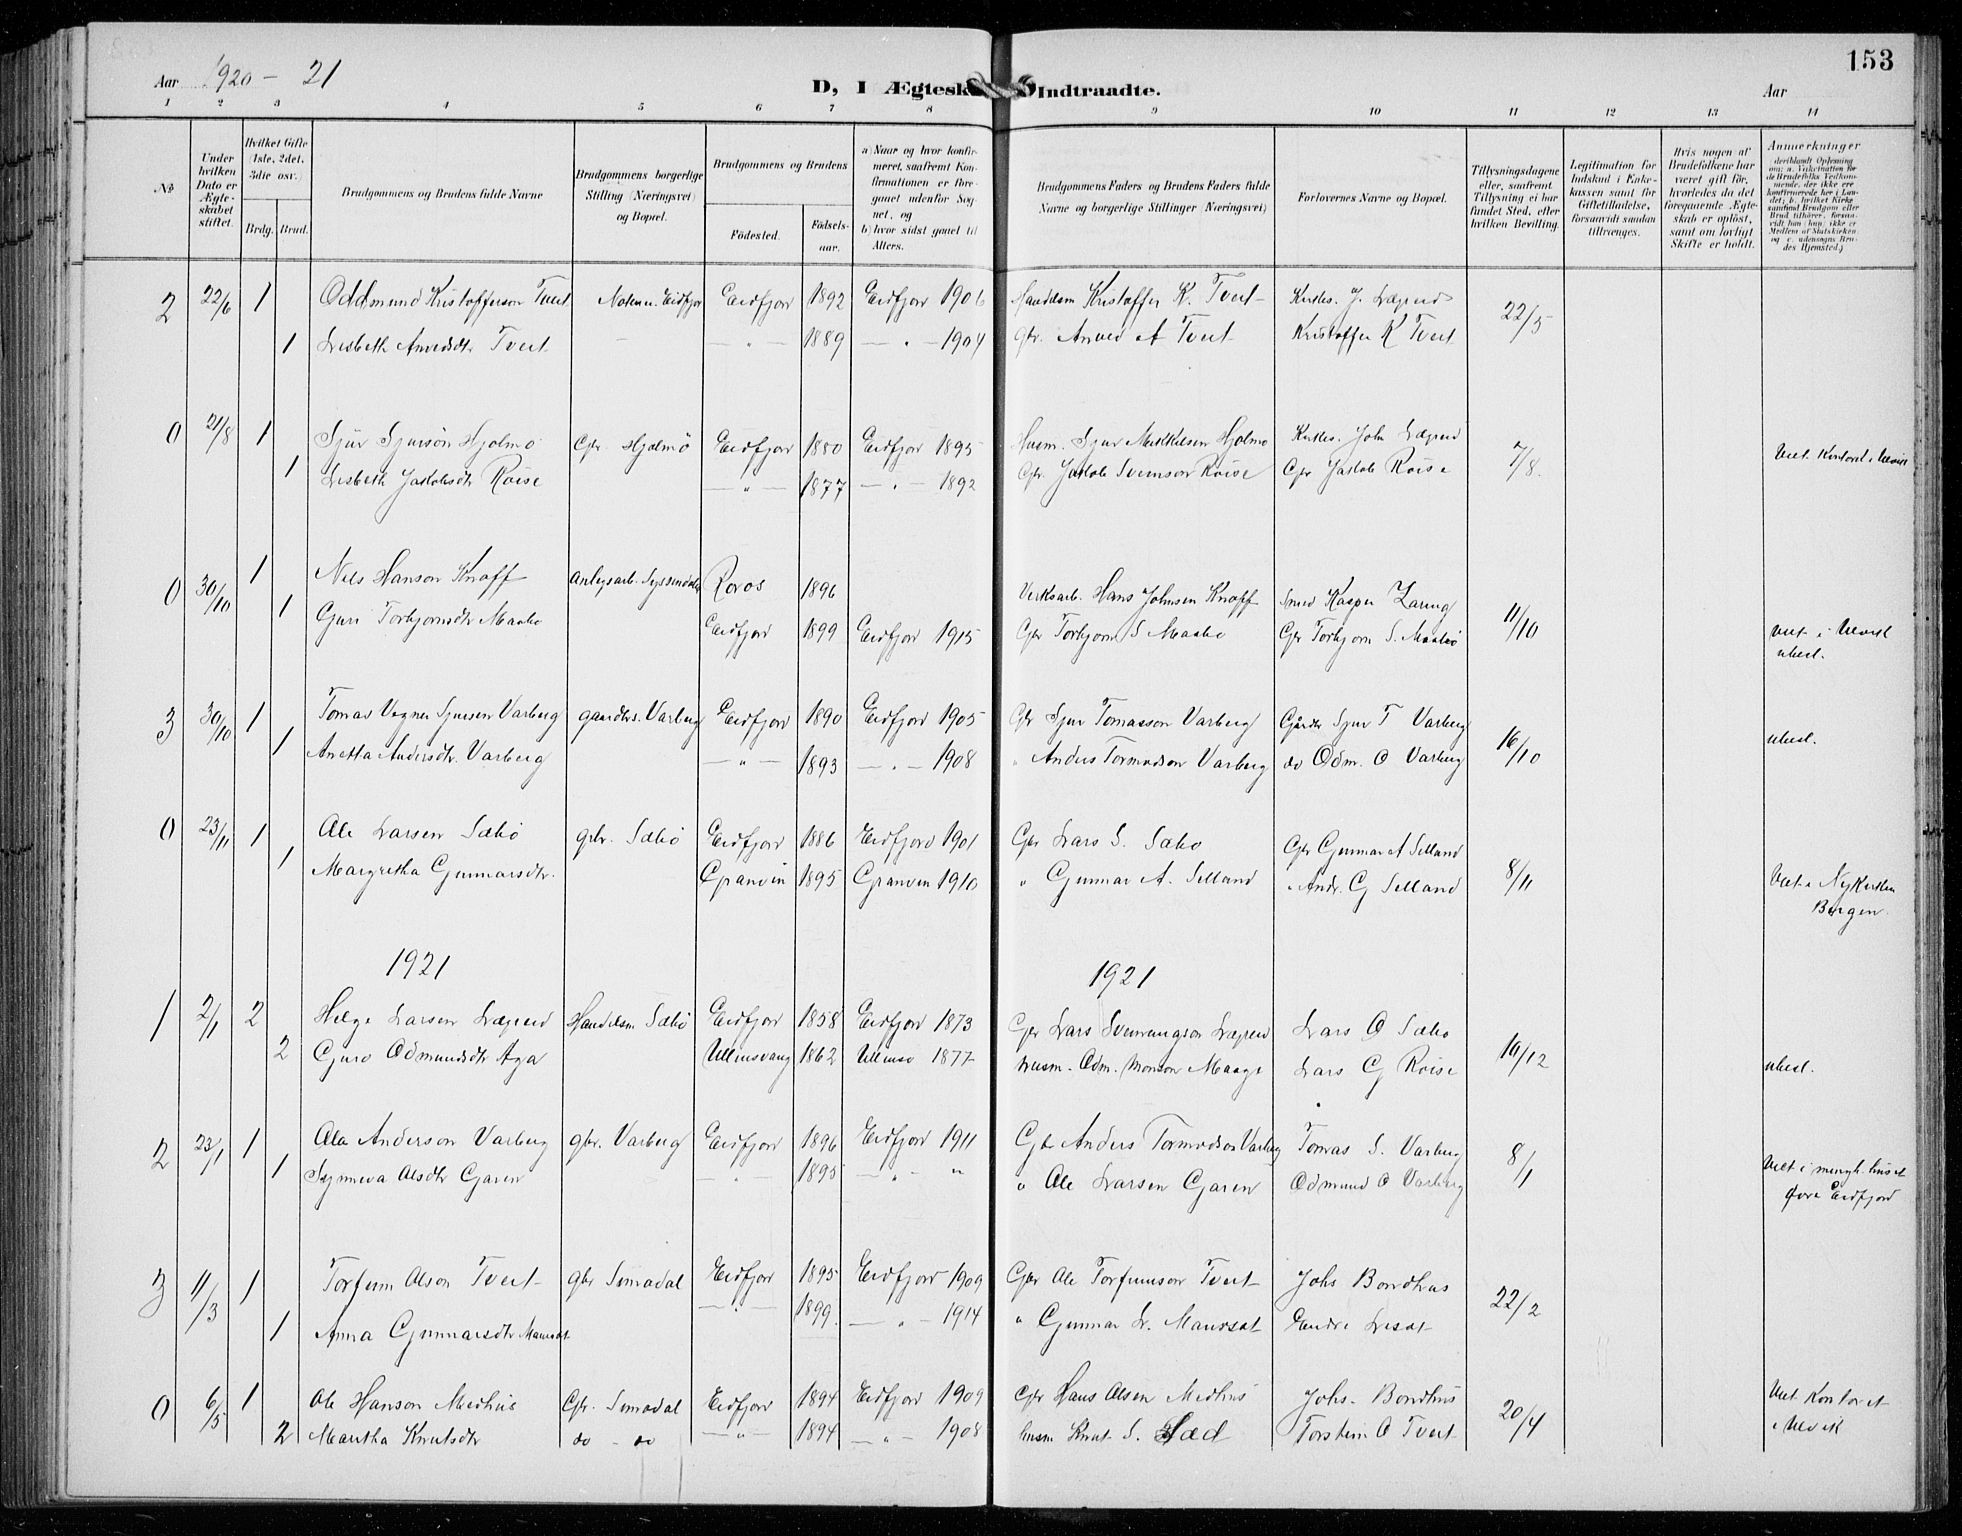 153
Aar 1920 - 21
D, I Ægtesk Indtraadte.
Aar
1 2 3 4 5 6 7 8 9 10 11 12 13 14
No
Under hvilken Dato er Ægteskabet stiftet.
Hvilket Gifte (1ste, 2det, 3die osv.)
Brdg. Brud.
Brudgommens og Brudens fulde Navne
Brudgommens borgerlige Stilling (Næringsvei) og Bopæl.
Brudgommens og Brudens
Fødested.
Fødselsaar.
a) Naar og hvor konfirmeret, saafremt Konfirmationen er foregaaet udenfor Sognet, og
b) hvor sidst gaaet til Alters.
Brudgommens Faders og Brudens Faders fulde Navne og borgerlige Stillinger (Næringsvei)
Forlovernes Navne og Bopæl.
Tillysningsdagene eller, saafremt Tillysning ei har fundet Sted, efter hvilken Bevilling.
Legitimation for Indskud i Enkekassen samt for Giftetilladelse, forsaavidt saadan tiltrænges.
Hvis nogen af Brudefolkene har været gift før, hvorledes da det foregaaende Ægteskab er opløst, samt om lovligt Skifte er holdt.
Anmerkninger
2 22/6 1 Oddmund Kristofferson Tveit Eidfjord 1892 Eidfjord 1906 Handelsm Kristoffer K. Tveit Kirkes. J. Lægreid 22/5
1 Lisbeth Anvedsdtr Tveit - " - 1889 - " - 1904 gbr. Anved A Tveit Kristoffer K Tveit
0 21/8 1 Sjur Sjursøn Hjølmo Gbr. Hjølmo Eidfjord 1880 Eidfjord 1895 Husm. Sjur Mikkelsen Hjølmo Kirkes. John Lægreid 7/8
1 Lisbeth Jakobsdtr Røise - " - 1877 - " - 1892 Gbr. Jakob Svenson Røise Gbr Jakob Røise Viet Kontoret i Ulvik
0 30/10 1 Nils Hanson Knoff Anlegsarb. Røros 1896 Verksarb. Hans Johnsen Knoff Smed Kasper 11/10
1 Guri Torbjørnsdtr Maabø Eidfjord 1899 Eidfjord 1915 Gbr Torbjørn S Maabø Gbr Torbjørn S. Maabø viet i Ulvik ubesl.
3 30/10 1 Tomas Vegner Sjursen Varberg gaardbr. Varberg Eidfjord 1890 Eidfjord 1905 Gbr Sjur Tomasson Varberg Gårdbr Sjur T Varberg 16/10
1 Anetta Andersdtr. Varberg - " - 1893 - " - 1908 " Anders Tormodson Varberg do Odm. O Varberg ubesl.
0 23/11 1 Ole Larsen Sæbø gbr. Sæbø Eidfjord 1886 Eidfjord 1901 Gbr Lars S. Sæbø Gbr Gunnar A Selland 8/11
1 Margretha Gunnarsdtr. Granvin 1895 Granvin 1910 " Gunnar A. Selland " Andr. G Selland Viet i Nykirken Bergen.
1921 1921
1 2/1 2 Helge Larsen Lægreid Handelsm Sæbø Eidfjord 1858 Eidfjord 1873 Gbr Lars Lægreid Lars O Sæbø 19/12
2 Guro Odmundsdtr Aga Ullensvang 1862 Ullensv 1877 Husm. Odm. Monson Maage Lars G Røise ubesl.
2 23/1 1 Ola Anderson Varberg gbr. Varberg Eidfjord 1896 Eidfjord 1911 Gbr Anders Tormodson Varberg Tomas S. Varberg 8/1
1 Synneva Olsdtr Garen - " - 1895 - " - " " Ole Larsen Garen Odmund O Varberg Viet i menigh. huset Øvre Eidfjord
3 11/3 1 Torfinn Olson Tveit gbr Simadal Eidfjord 1895 Eidfjord 1909 Gbr Ole Torfinnson Tveit Johs Bondhus 22/2
1 Anna Gunnarsdtr Maursæt - " - 1899. - " - 1914 " Gunnar L. Maursæt Endre Lisæt
0 6/5 1 Ole Hanson Medhus Gbr. Simadal Eidfjord 1894 Eidfjord 1909 Gbr Hans Olsen Medhus Johs. Bondhus 20/4
2 Martha Knutsdtr do - do - " - 1894 - " - 1908 husm Knut S. Sæd Torstein O Tveit Viet Kontoret i Ulvik